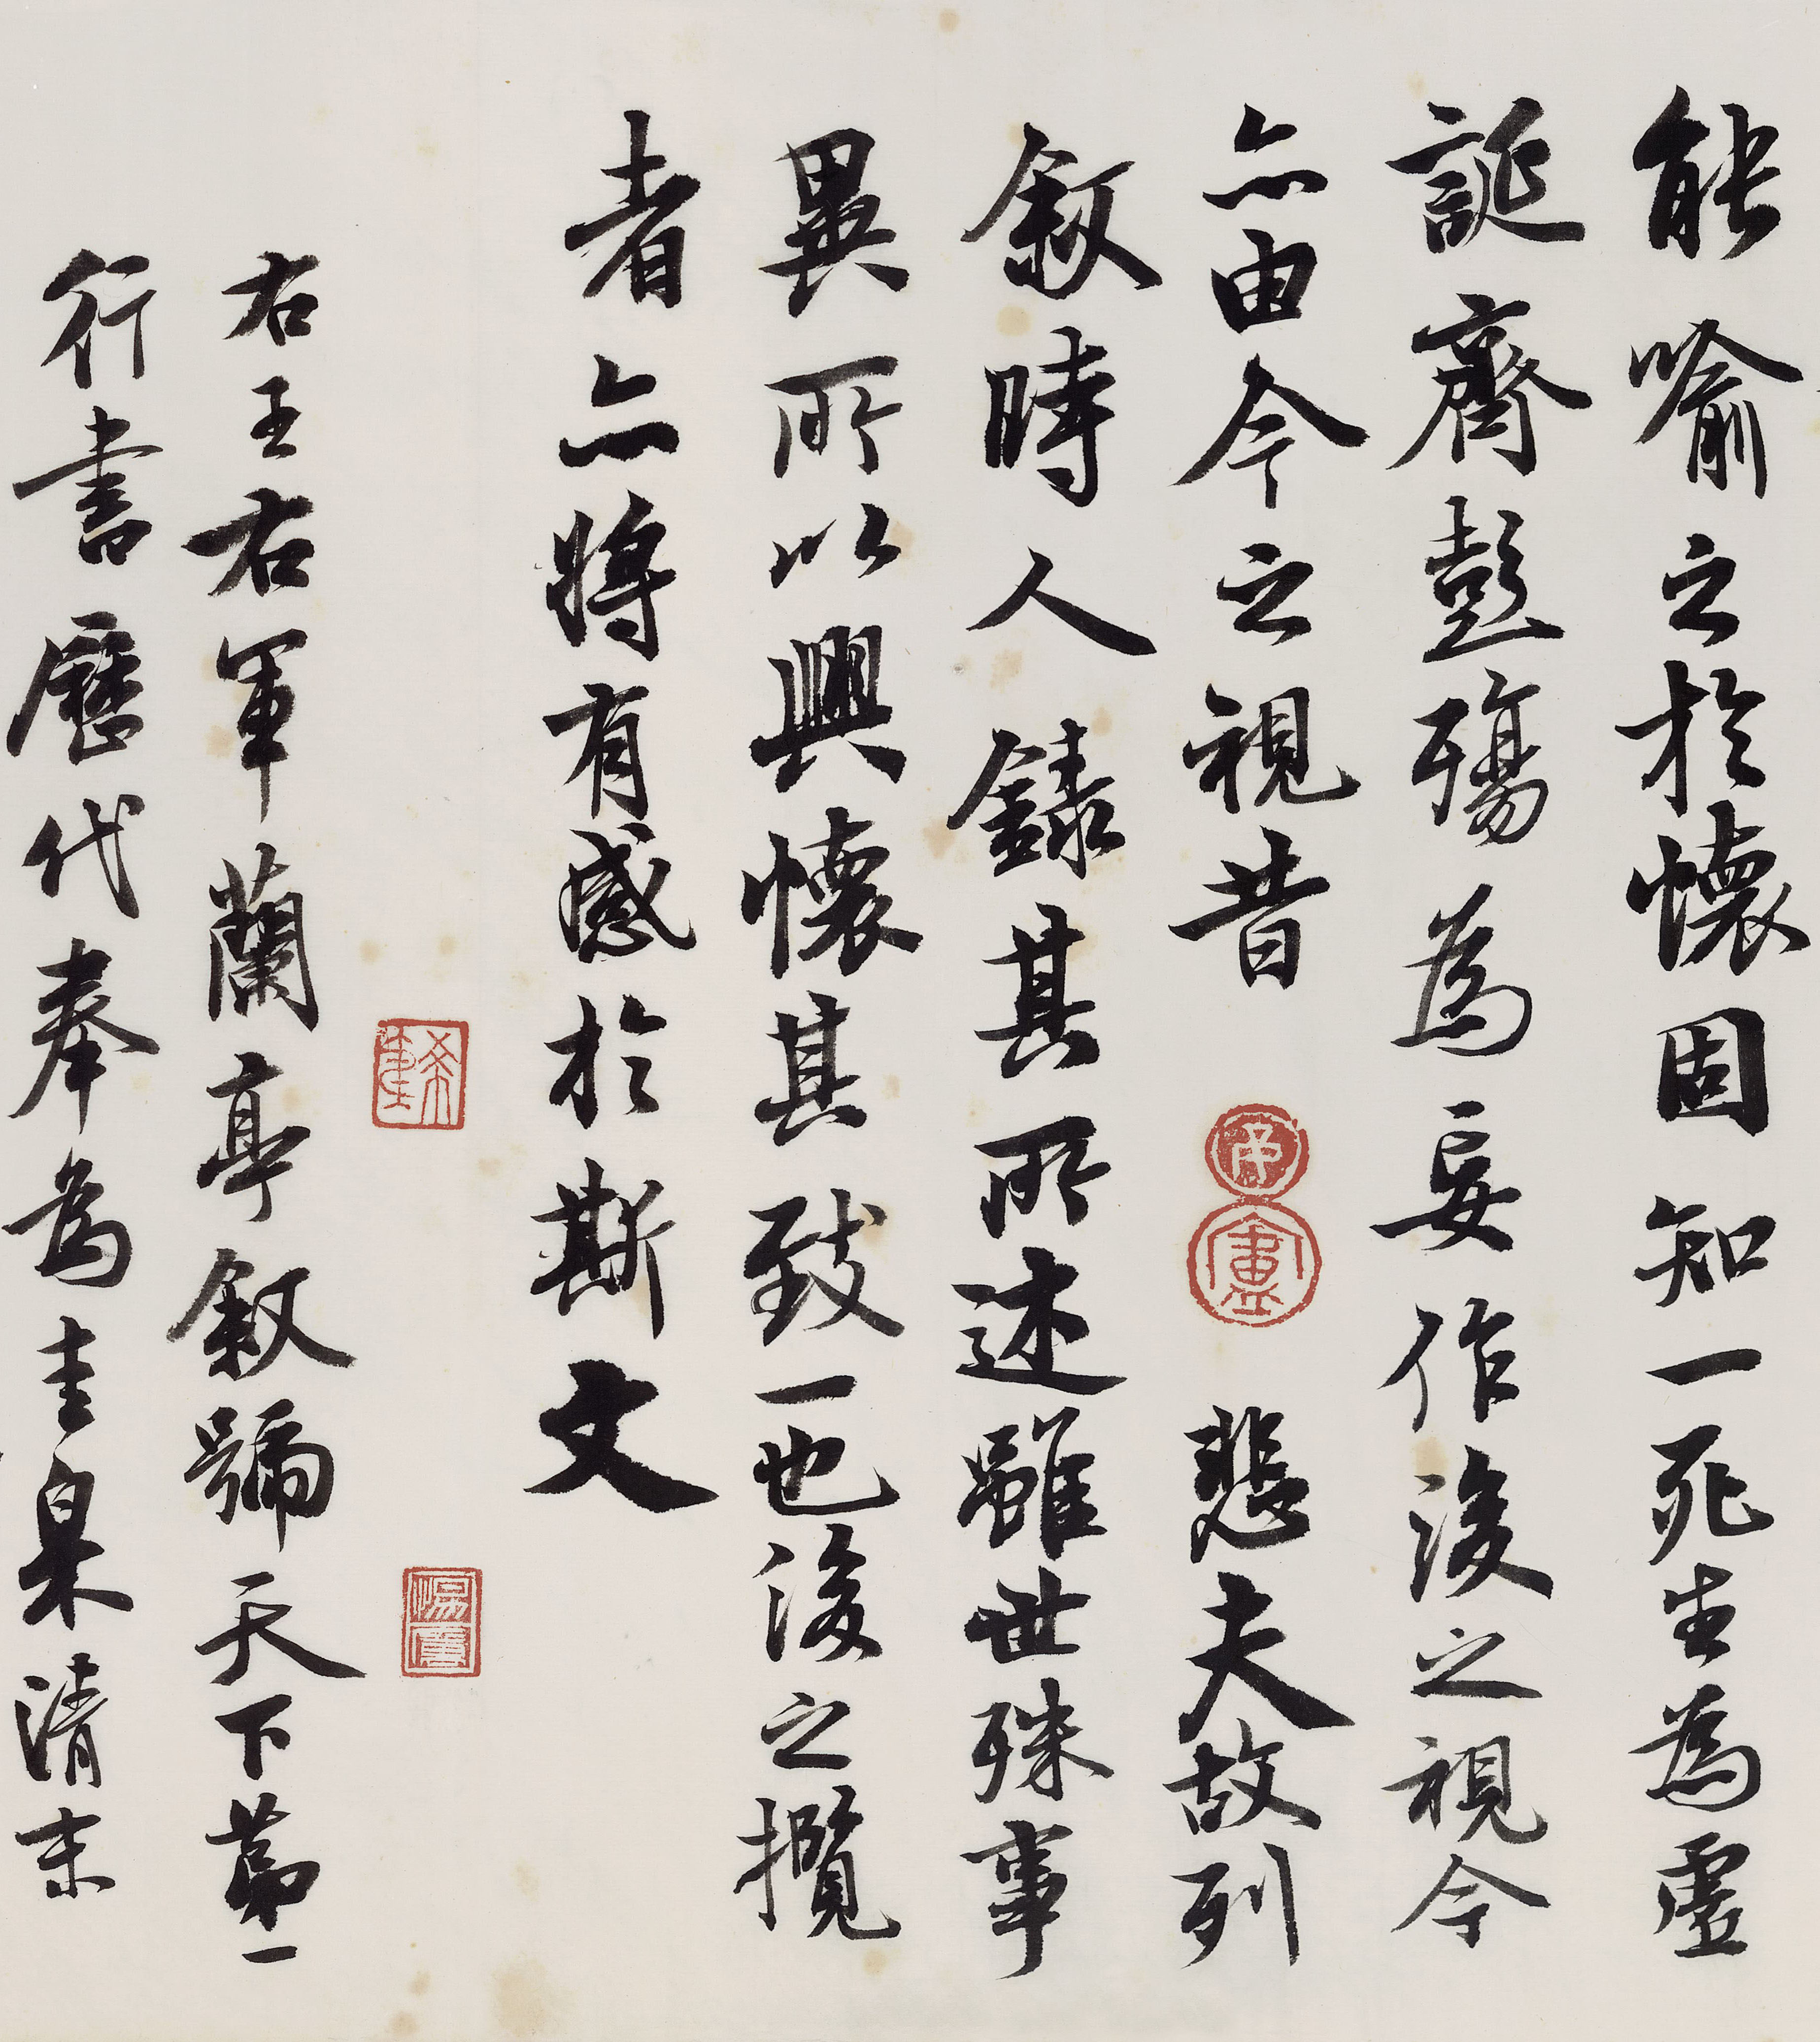 能喻之於懷固知一死生爲虛
誕齊彭殤爲妄作後之視今
亦由今之視昔悲夫故列
敘時人錄其所述雖世殊事
異所以興懷其致一也後之攬
者亦將有感於斯文
右王右軍蘭亭敘號天下第一
行書歷代奉為圭臬清末